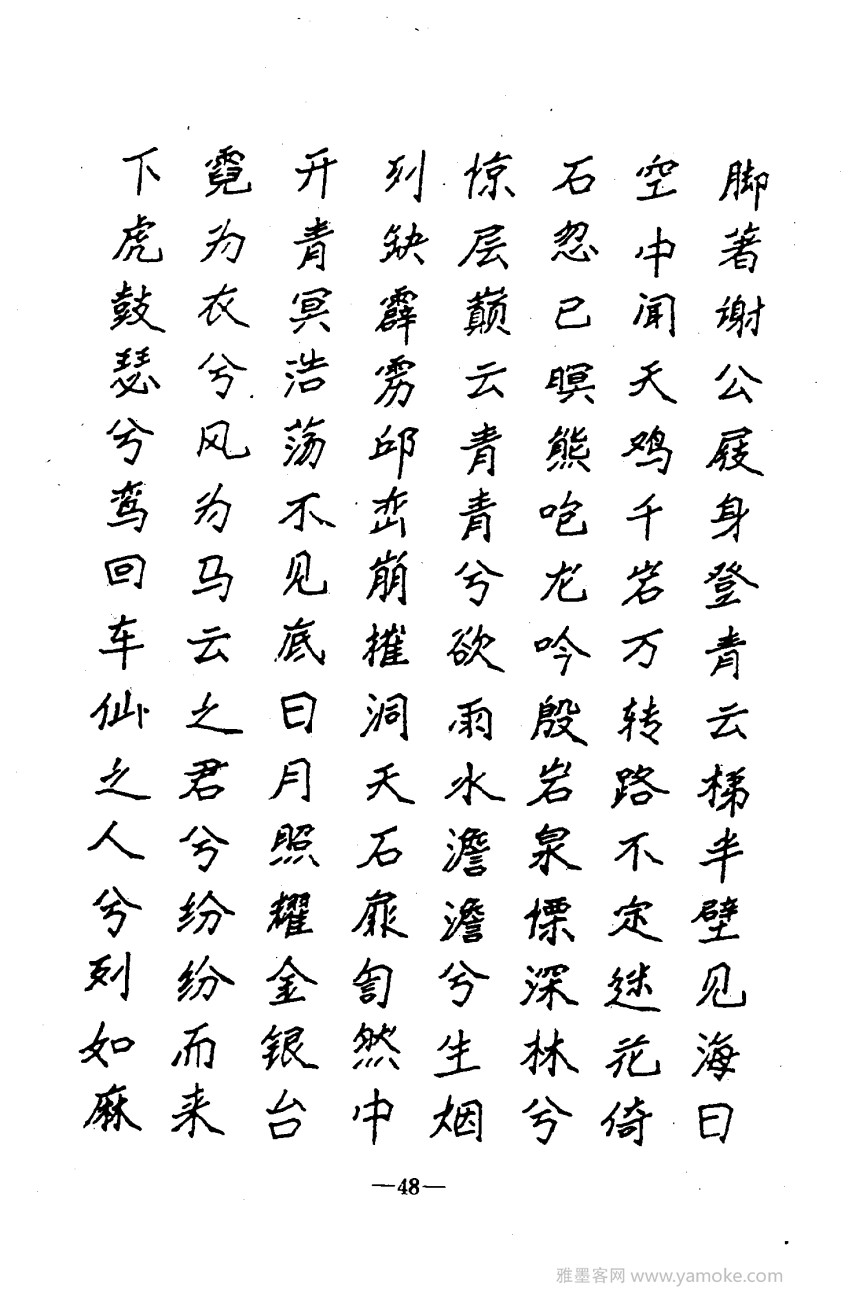 脚著谢公屐身登青云梯半壁见海日
空中闻天鸡千岩万转路不定迷花倚
石忽已暝熊咆龙吟殷岩泉慄深林兮
惊层巅云青青兮欲雨水澹澹兮生烟
列缺霹雳邱峦崩摧洞天石扉訇然中
开青冥浩荡不见底日月照耀金银台
霓为衣兮风为马云之君兮纷纷而来
下虎鼓瑟兮鸾回车仙之人兮列如麻
—48—
雅墨客网 www.yamoke.com